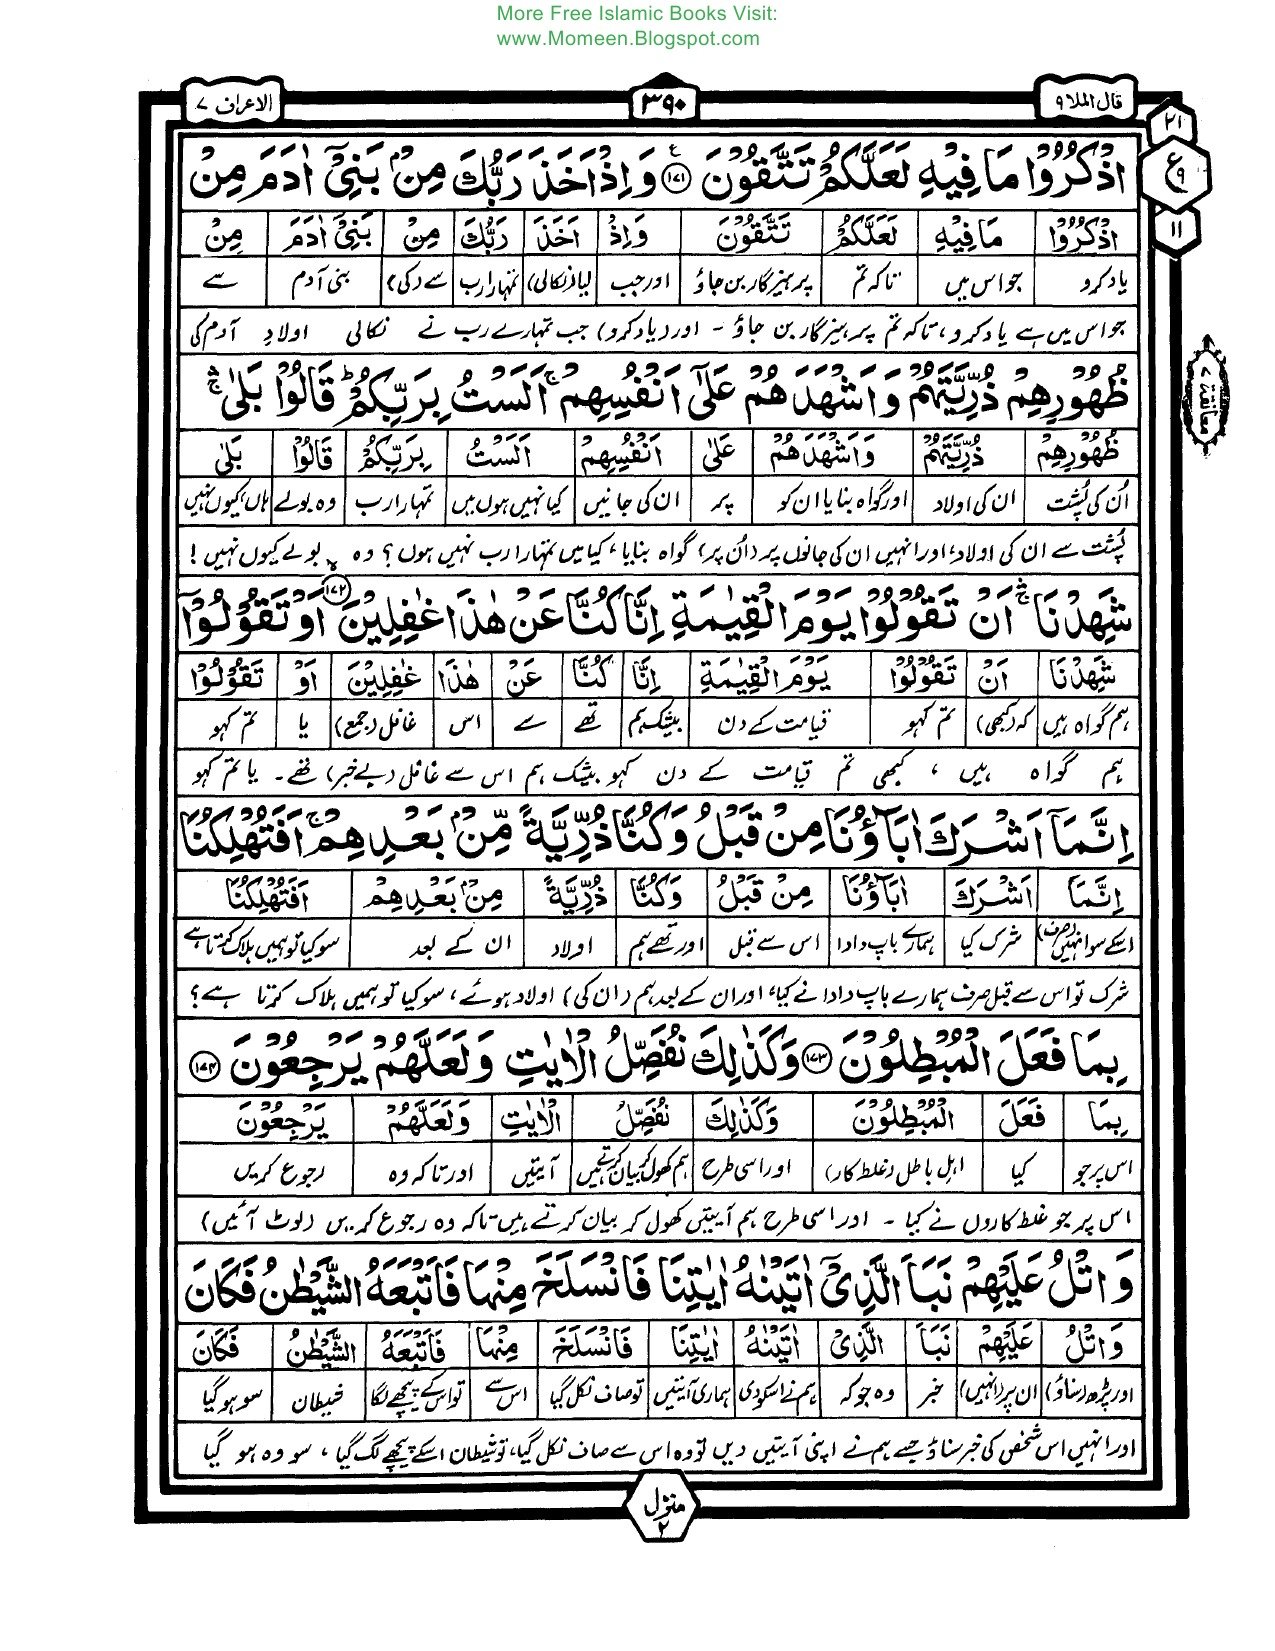 More Free Islamic Books Visit:
www.Momeen.Blogspot.com
قال الملا ٩
٣٩٠
الاعراف ٧
٢١
ع ٩
١١
معانقة ٧
اذْكُرُوْا مَا فِيْهِ لَعَلَّكُمْ تَتَّقُوْنَ ﴿۱۷۱﴾ وَ اِذْ اَخَذَ رَبُّكَ مِنْۢ بَنِیْۤ اٰدَمَ مِنْ
اذْكُرُوْا مَا فِيْهِ لَعَلَّكُمْ تَتَّقُوْنَ وَاِذْ اَخَذَ رَبُّكَ مِنْۢ بَنِیْۤ اٰدَمَ مِنْ
یاد کرو جو اس میں تاکہ تم پرہیزگار بن جاؤ اور جب لیا (نکالی) تمہارا رب سے (کی) بنی آدم سے
جو اس میں ہے یاد کرو، تاکہ تم پرہیزگار بن جاؤ ۔ اور (یاد کرو) جب تمہارے رب نے نکالی اولادِ آدم کی
ظُهُوْرِهِمْ ذُرِّيَّتَهُمْ وَ اَشْهَدَهُمْ عَلٰۤی اَنْفُسِهِمْ ۚ اَلَسْتُ بِرَبِّكُمْ ؕ قَالُوْا بَلٰی ۛۚ
ظُهُوْرِهِمْ ذُرِّيَّتَهُمْ وَاَشْهَدَهُمْ عَلٰۤی اَنْفُسِهِمْ اَلَسْتُ بِرَبِّكُمْ قَالُوْا بَلٰی
اُن کی پُشت ان کی اولاد اور گواہ بنایا ان کو پر ان کی جانیں کیا نہیں ہوں میں تمہارا رب وہ بولے ہاں، کیوں نہیں
پُشت سے ان کی اولاد، اور انہیں ان کی جانوں پر (اُن پر) گواہ بنایا، کیا میں تمہارا رب نہیں ہوں؟ وہ بولے کیوں نہیں!
شَهِدْنَا ۛۚ اَنْ تَقُوْلُوْا يَوْمَ الْقِيٰمَةِ اِنَّا كُنَّا عَنْ هٰذَا غٰفِلِيْنَ ﴿۱۷۲﴾ اَوْ تَقُوْلُوْۤا
شَهِدْنَا اَنْ تَقُوْلُوْا يَوْمَ الْقِيٰمَةِ اِنَّا كُنَّا عَنْ هٰذَا غٰفِلِيْنَ اَوْ تَقُوْلُوْۤا
ہم گواہ ہیں کہ (کبھی) تم کہو قیامت کے دن بیشک ہم تھے سے اس غافل (جمع) یا تم کہو
ہم گواہ ہیں، کبھی تم قیامت کے دن کہو بیشک ہم اس سے غافل (بے خبر) تھے۔ یا تم کہو
اِنَّمَاۤ اَشْرَكَ اٰبَآؤُنَا مِنْ قَبْلُ وَ كُنَّا ذُرِّيَّةً مِّنْۢ بَعْدِهِمْ ۚ اَفَتُهْلِكُنَا
اِنَّمَاۤ اَشْرَكَ اٰبَآؤُنَا مِنْ قَبْلُ وَكُنَّا ذُرِّيَّةً مِنْۢ بَعْدِهِمْ اَفَتُهْلِكُنَا
اسکے سوا نہیں (صرف) شرک کیا ہمارے باپ دادا اس سے قبل اور تھے ہم اولاد ان کے بعد سو کیا تو ہمیں ہلاک کرتا ہے
شرک تو اس سے قبل صرف ہمارے باپ دادا نے کیا، اور ان کے بعد ہم (ان کی) اولاد ہوئے، سو کیا تو ہمیں ہلاک کرتا ہے؟
بِمَا فَعَلَ الْمُبْطِلُوْنَ ﴿۱۷۳﴾ وَ كَذٰلِكَ نُفَصِّلُ الْاٰيٰتِ وَ لَعَلَّهُمْ يَرْجِعُوْنَ ﴿۱۷۴﴾
بِمَا فَعَلَ الْمُبْطِلُوْنَ وَكَذٰلِكَ نُفَصِّلُ الْاٰيٰتِ وَلَعَلَّهُمْ يَرْجِعُوْنَ
اس پر جو کیا اہلِ باطل (غلط کار) اور اسی طرح ہم کھول کر بیان کرتے ہیں آیتیں اور تاکہ وہ رجوع کریں
اس پر جو غلط کاروں نے کیا ۔ اور اسی طرح ہم آیتیں کھول کر بیان کرتے ہیں تاکہ وہ رجوع کریں (لوٹ آئیں)
وَ اتْلُ عَلَيْهِمْ نَبَاَ الَّذِیْۤ اٰتَيْنٰهُ اٰيٰتِنَا فَانْسَلَخَ مِنْهَا فَاَتْبَعَهُ الشَّيْطٰنُ فَكَانَ
وَاتْلُ عَلَيْهِمْ نَبَاَ الَّذِیْۤ اٰتَيْنٰهُ اٰيٰتِنَا فَانْسَلَخَ مِنْهَا فَاَتْبَعَهُ الشَّيْطٰنُ فَكَانَ
اور پڑھ (سناؤ) ان پر (انہیں) خبر وہ جو کہ ہم نے اسکو دی ہماری آیتیں تو صاف نکل گیا اس سے تو اس کے پیچھے لگا شیطان سو ہو گیا
اور انہیں اس شخص کی خبر سناؤ جسے ہم نے اپنی آیتیں دیں تو وہ اس سے صاف نکل گیا، تو شیطان اسکے پیچھے لگ گیا، سو وہ ہو گیا
منزل ٢